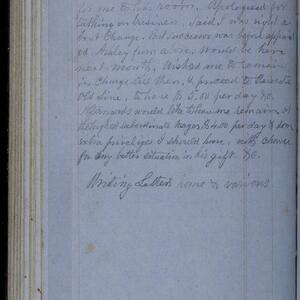 for me to his room. Apologised for
talking on business. Said I was right a
but Change. But successor was before appoint
ed. Henley from above, would be here
next month, Wished me to remain
in charge till then, & proceed to
Old Line, to have $ 5.00 per day &c.
Afterwards would like to have me remain at
the highest subordinate wages $4.00 per day & some
extra privileges I should have, with chance
for any better situation in his gift. &c.
Writing Letters home & various